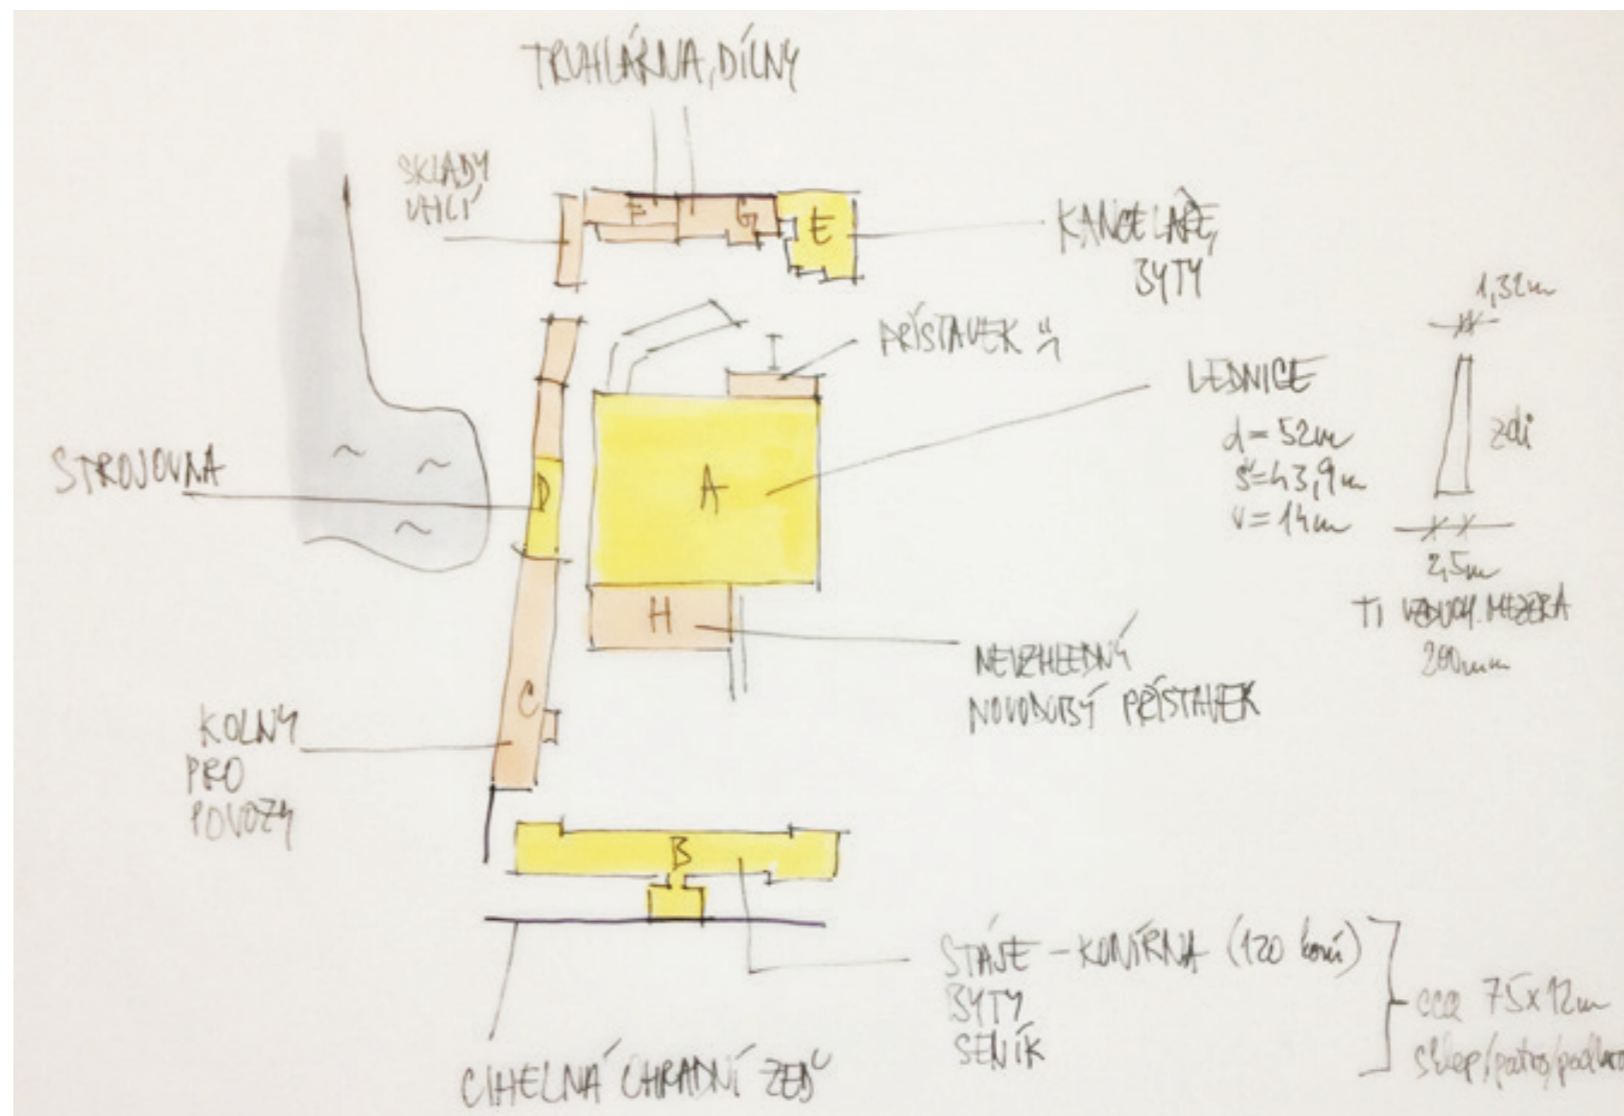 TRUHLÁRNA, DÍLNY
SKLADY
UHLÍ
F
G
E
KANCELÁŘE,
BYTY
1,32m
PŘÍSTAVEK
LEDNICE
d = 52m
š = 43,9m
v = 14m
zdi
2,5m
TI VZDUCH. MEZERA
200mm
STROJOVNA
D
A
H
NEVZHLEDNÝ
NOVODOBÝ PŘÍSTAVEK
C
KOLNY
PRO
POVOZY
B
STÁJE - KONÍRNA (120 koní)
BYTY
SENÍK
cca 75x12m
sklep/patro/
CIHELNÁ OHRADNÍ ZEĎ